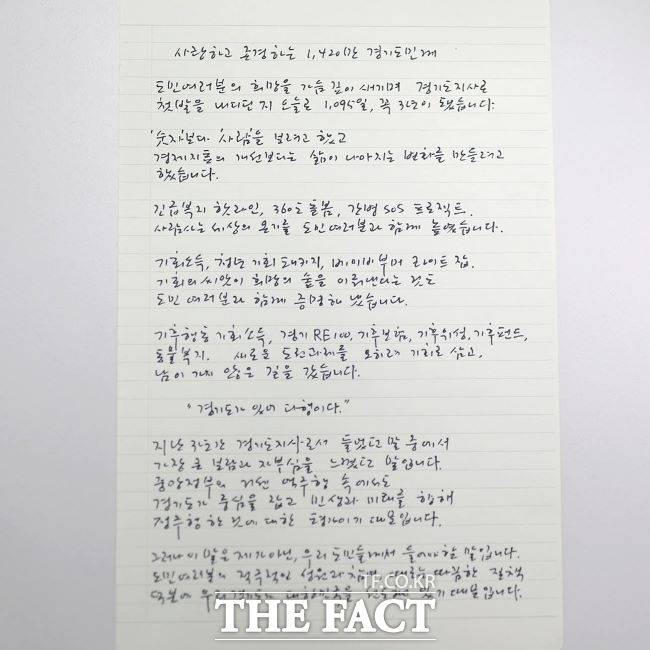 사랑하고 존경하는 1,420만 경기도민께
도민여러분의 희망을 가슴 깊이 새기며 경기도지사로
첫발을 내디딘 지 오늘로 1,095일, 꼭 3년이 됐습니다.
'숫자'보다 '사람'을 보려고 했고
경제지표의 개선보다는 삶이 나아지는 변화를 만들려고
했습니다.
긴급복지 핫라인, 360도 돌봄, 간병 SOS 프로젝트.
사람사는 세상의 온기를 도민여러분과 함께 높였습니다.
기회소득, 청년 기회 패키지, 베이비부머 라이트 잡.
기회의 씨앗이 희망의 숲을 이뤄낸다는 것도
도민 여러분과 함께 증명해 냈습니다.
기후행동 기회소득, 경기 RE100, 기후보험, 기후위성, 기후펀드,
동물복지. 새로운 도전과제를 오히려 기회로 삼고,
남이 가지 않은 길을 갔습니다.
"경기도가 있어 다행이다."
지난 3년간 경기도지사로서 들었던 말 중에서
가장 큰 보람과 자부심을 느꼈던 말입니다.
중앙정부의 거센 역주행 속에서도
경기도가 중심을 잡고 민생과 미래를 향해
정주행 한 것에 대한 평가이기 때문입니다.
그러나 이 말은 제가 아닌, 우리 도민들께서 들어야 할 말입니다.
도민여러분의 적극적인 성원과 참여, 때로는 따끔한 질책
덕분에 우리 경기도는 대한민국을 있기 때문입니다.
TF.CO.KR
THE FACT